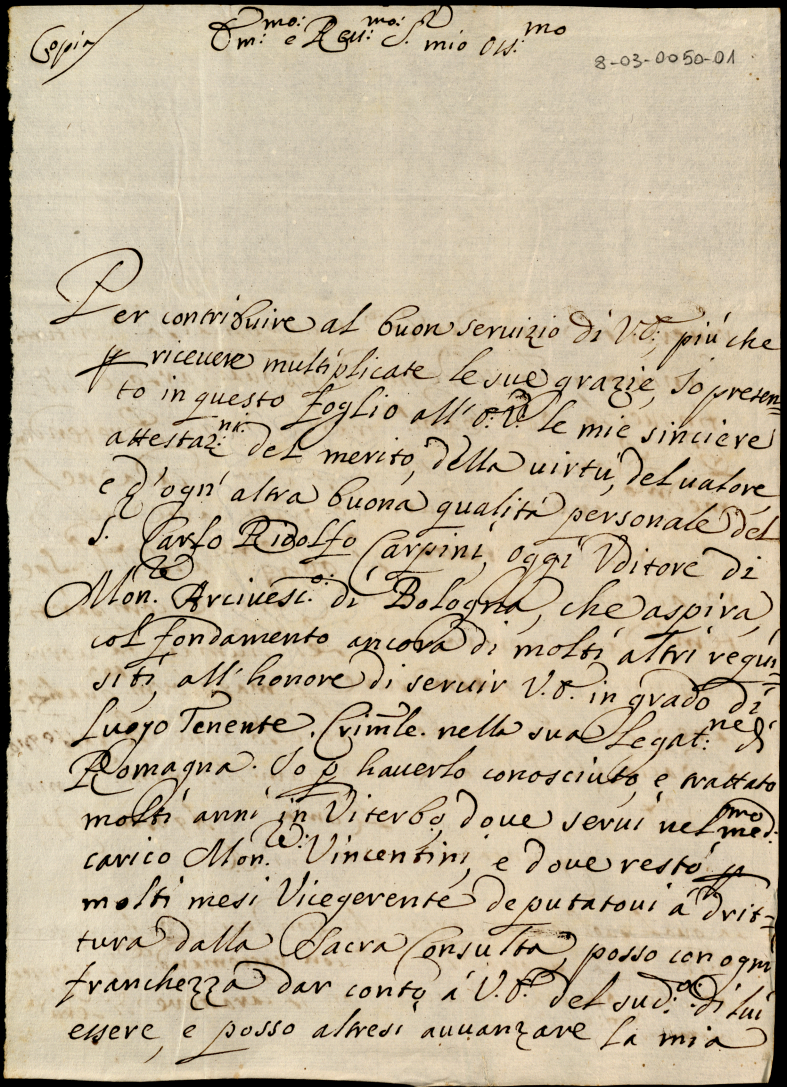 Copia
Em.mo: e Reu.mo: S.r mio Oss.mo
8-03-0050-01
Per contribuire al buon seruizio di V.E., piú che
p riceuere multiplicate le sue grazie, Io presen=
to in questo foglio all' E.V. le mie sinciere
attestaz.ni: del merito, della uirtú, del ualore,
e d'ogn' altra buona qualitá personale del
S. Carlo Ridolfo Carpini, oggi Vditore di
Mon.r Arciuesc.o: di Bologna, che aspira,
col fondamento ancora di molti altri requi=
siti, all' honore di seruir V.E. in grado di
Luogo Tenente. Crim̃le. nella sua Legat:ne di
Romagna. Io p hauerlo conosciuto, e trattato
molti anni in Viterbo, doue serui nel med.mo
carico Mon.r: Vincentini, e doue restó p
molti mesi Vicegerente deputatoui á drit=
tura dalla Sacra Consulta, posso con ogni
franchezza dar conto á V.E. del sud.o: di lui
essere, e posso altresi auuanzare la mia